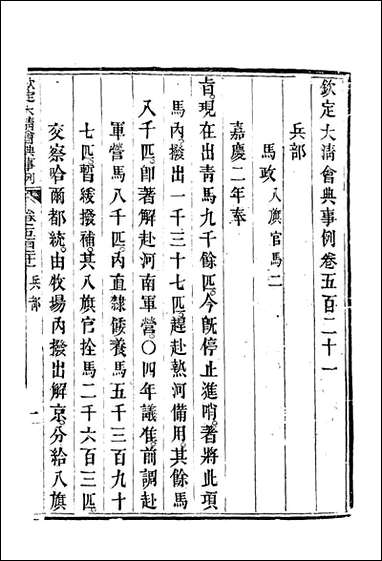 欽定大清會典事例卷五百二十一
兵部
馬政八旗官馬二
嘉慶二年奉
旨現在出青馬九千餘匹今旣停止進哨著將此項
馬內撥出一千三十七匹趕赴熱河備用其餘馬
八千匹卽著解赴河南軍營〇四年議准前調赴
軍營馬八千匹內直隸餧養馬五千三百九十
七匹暫緩撥補其八旗官拴馬二千六百三匹
交察哈爾都統由牧場內撥出解京分給八旗
欽定大清會典事例 卷五百二十一 兵部 一